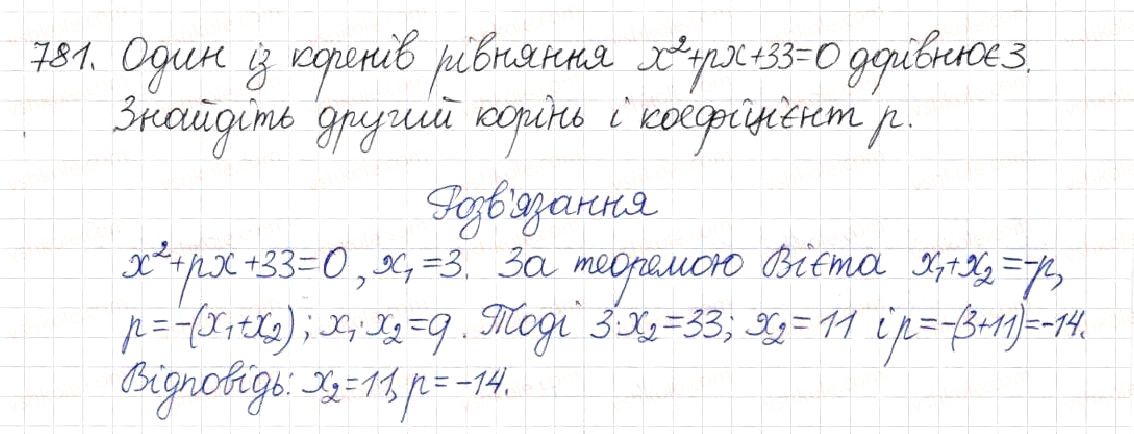 781. Один із коренів рівняння x²+px+33=0 дорівнює 3.
Знайдіть другий корінь і коефіцієнт p.
Розв'язання
x²+px+33=0, x₁=3. За теоремою Вієта x₁+x₂=-p,
p=-(x₁+x₂); x₁·x₂=q. Тоді 3·x₂=33; x₂=11 і p=-(3+11)=-14.
Відповідь: x₂=11, p=-14.